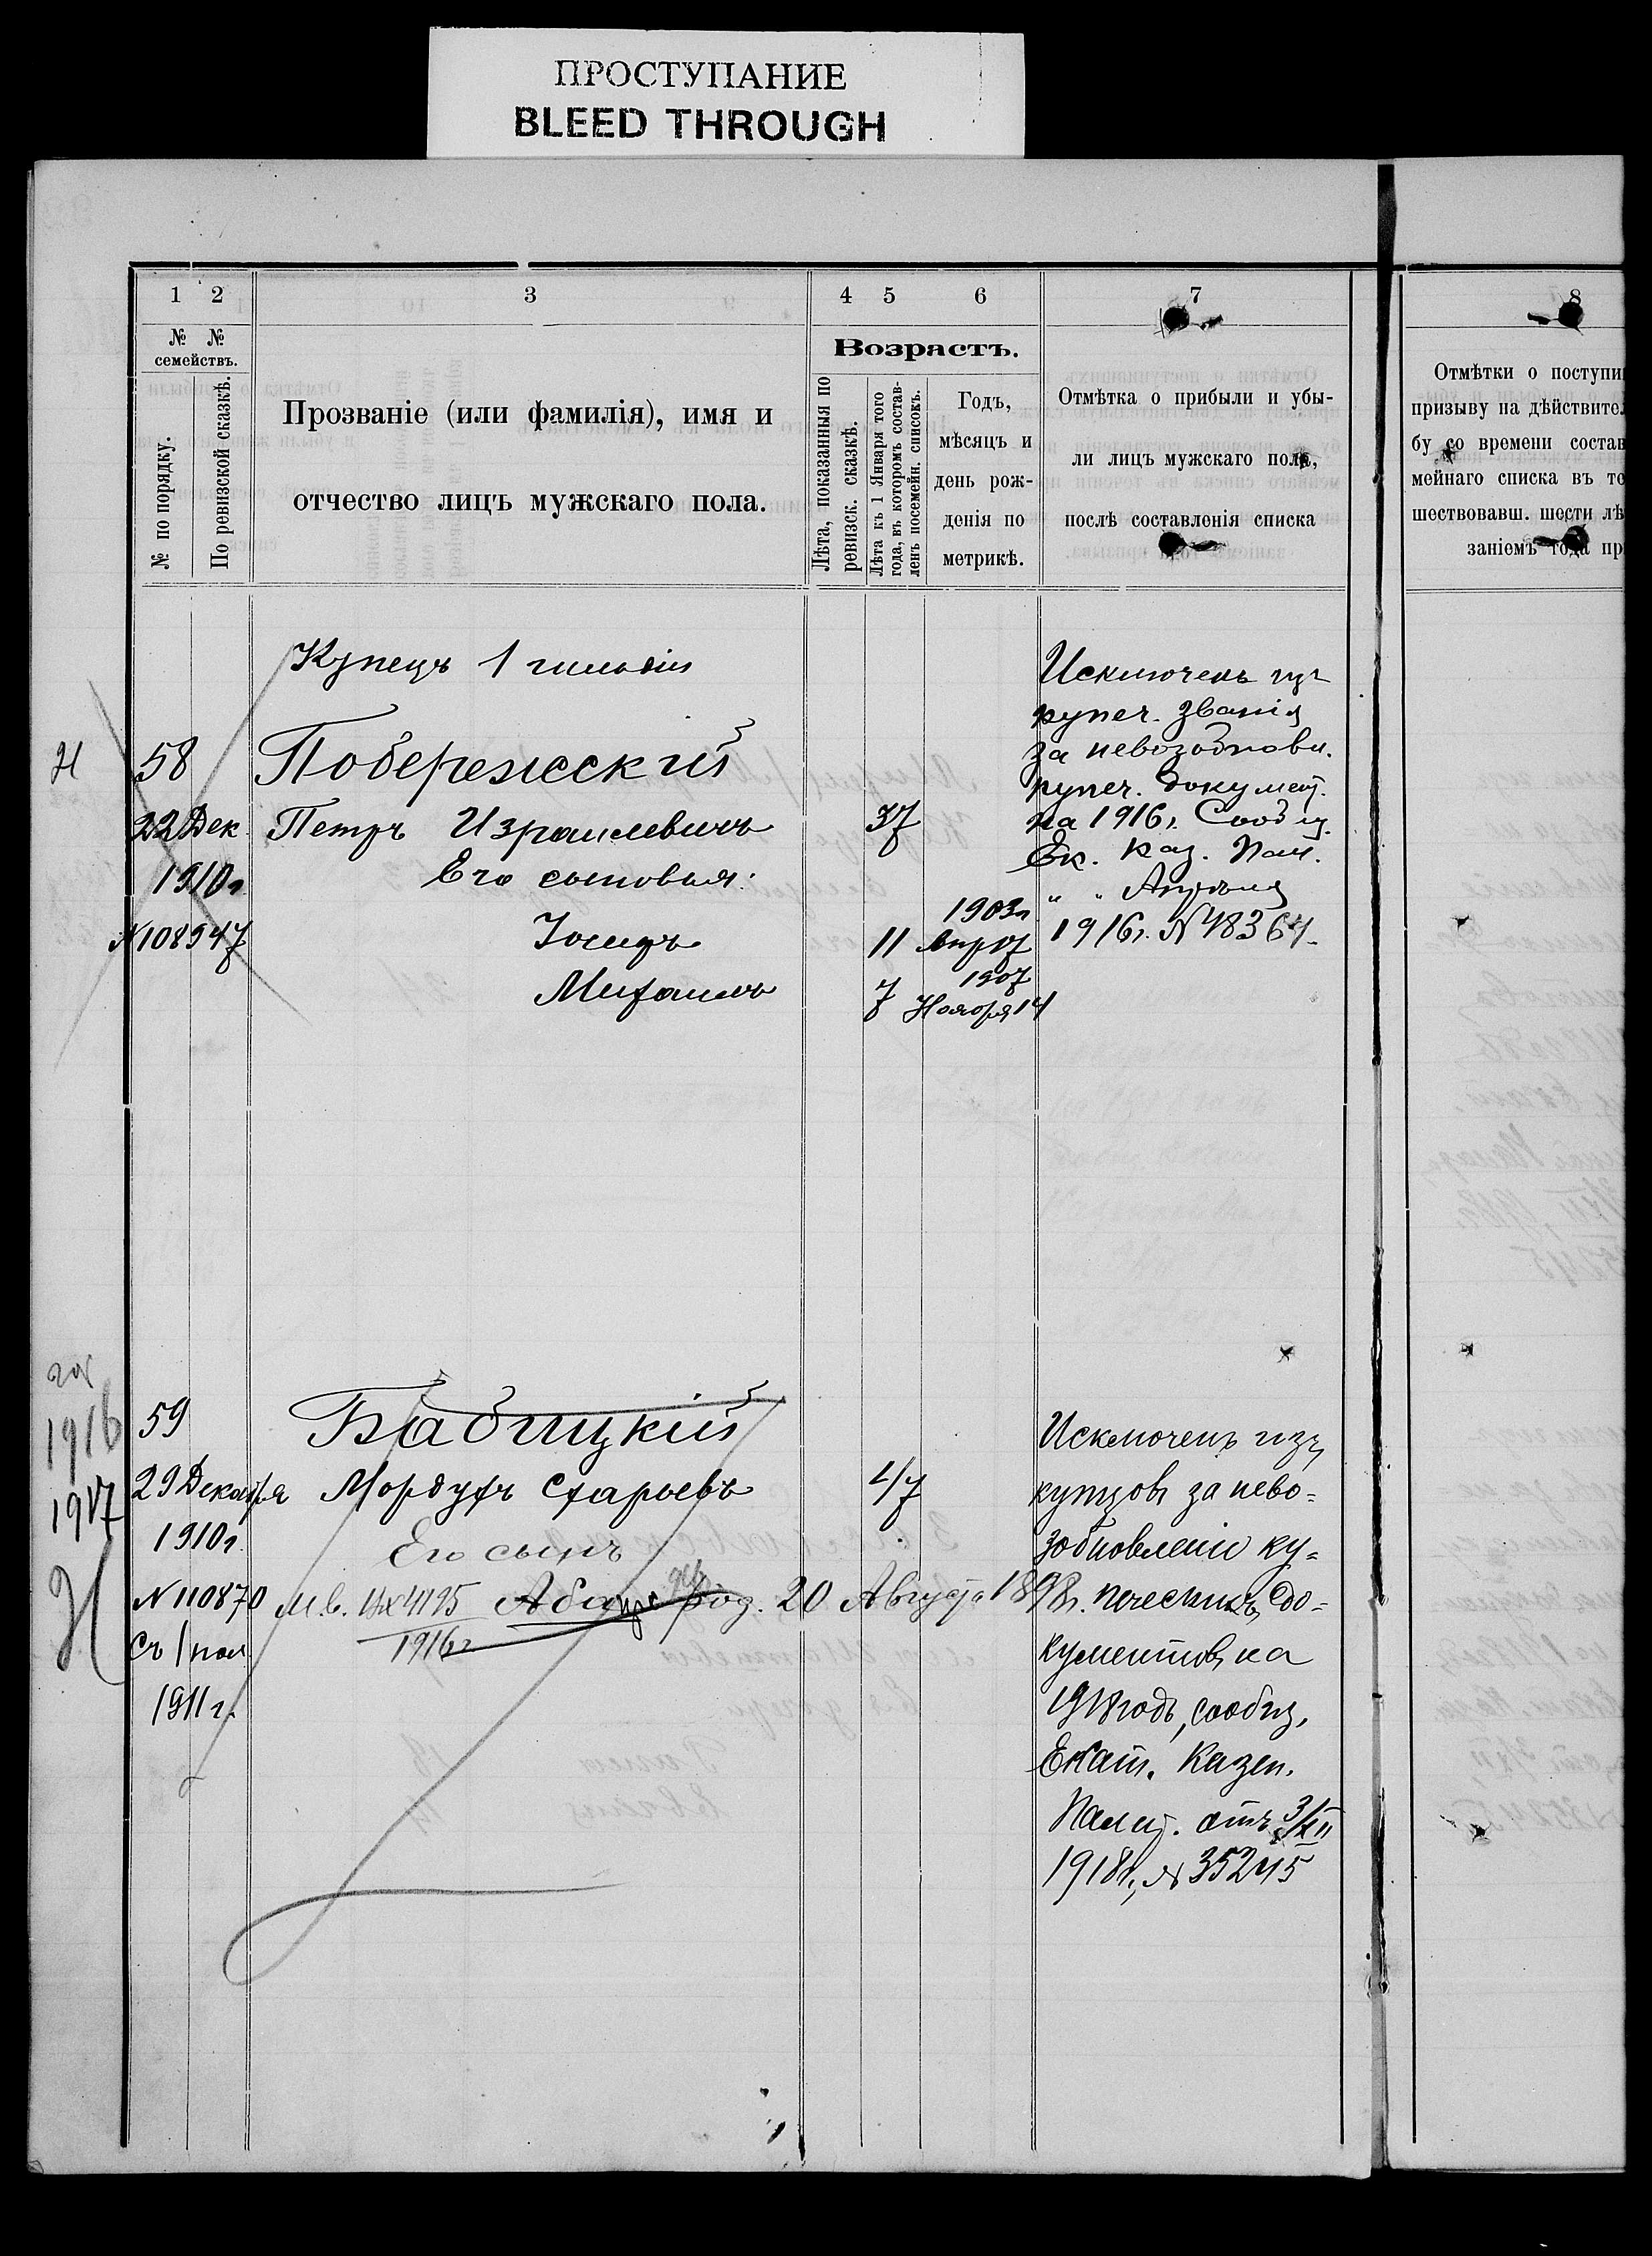 ПРОСТУПАНИЕ
BLEED THROUGH
1 2 3 4 5 6 7 8
№ № семействъ.
№ по порядку.
По ревизской сказкѣ.
Прозваніе (или фамилія), имя и
отчество лицъ мужскаго пола.
Возрастъ.
Лѣта, показанныя по
ревизск. сказкѣ.
Лѣта къ 1 Января того
года, въ которомъ состав-
ленъ посемейн. списокъ.
Годъ,
мѣсяцъ и
день рож-
денія по
метрикѣ.
Отмѣтка о прибыли и убы-
ли лицъ мужскаго пола,
послѣ составленія списка
Отмѣтки о поступи
призыву на дѣйствител
бу со времени состав
мейнаго списка въ те
шествовавш. шести лѣ
заніемъ года пр
Купецъ 1 гильдіи
58 Побережскій
22 Дек Петръ Израилевичъ 37
1910г. Его сыновья:
1903г.
№108947 Іосифъ 11 Апр 17
1907
Михаилъ 7 Ноября 14
Исключенъ изъ
купеч. званія
за невозобновл.
купеч. документ.
на 1916г. Сообщ.
Ек. Каз. Пал.
" " Апрѣля
1916г. №48364.
1916
1917
59 Бабицкій
29 Декабря Мордухъ Старьевъ 47
1910г. Его сынъ
№110870 М.в. 4195 Аба род. 20 Августа 1898г.
1916г
съ 1 пол
1911г.
Исключенъ изъ
купцовъ за нево=
зобновленіи ку=
печескихъ до=
кументовъ на
1918 годъ, сообщ.
Екат. Казен.
Палат. отъ 3/XII
1918г., № 35245